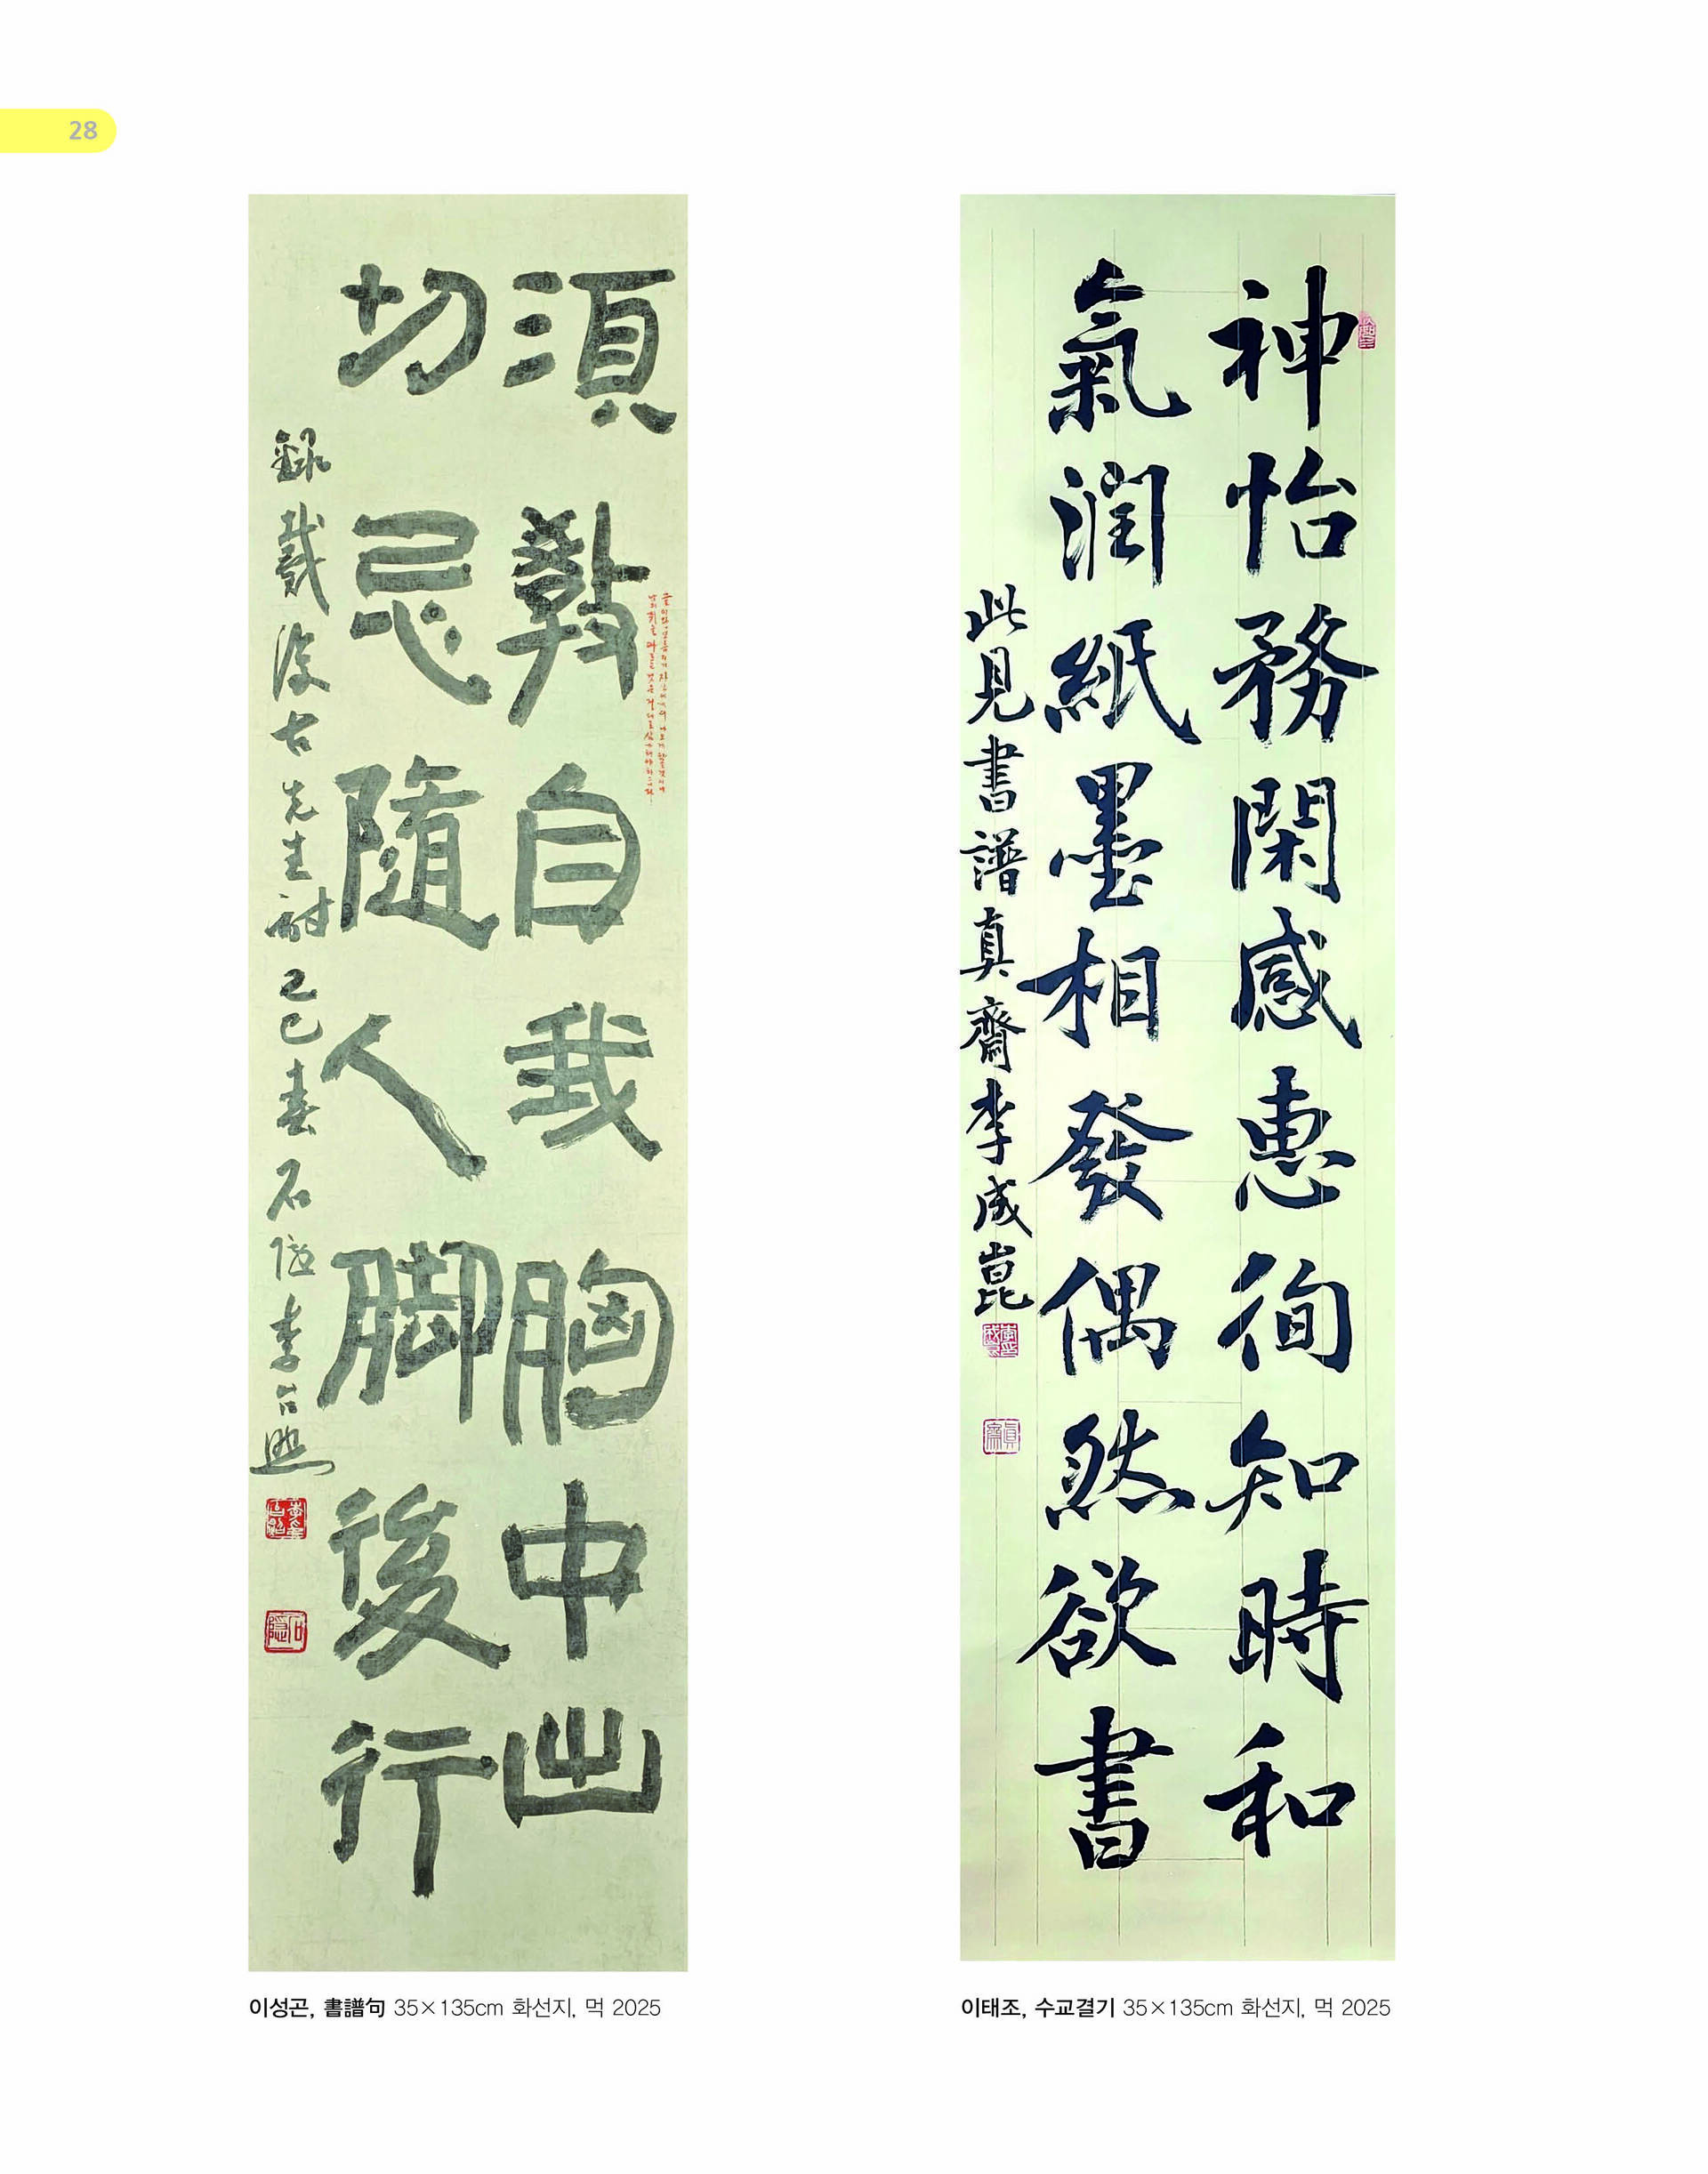 28
須教自我胸中出
切忌隨人脚後行
錄戴復古先生詩 乙巳春 石隱 李台照
神怡務閑感惠徇知時和
氣润紙墨相發偶然欲書
此見書譜 真齋 李成崑
이성곤, 書譜句 35×135cm 화선지, 먹 2025
이태조, 수교결기 35×135cm 화선지, 먹 2025